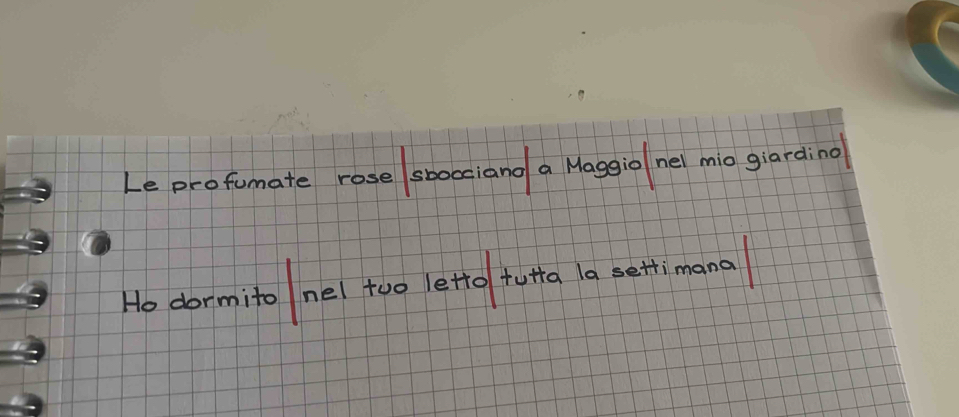 Le profumate rose | sbocciano | a Maggio | nel mio giardino |
Ho dormito | nel tuo letto | tutta la settimana |